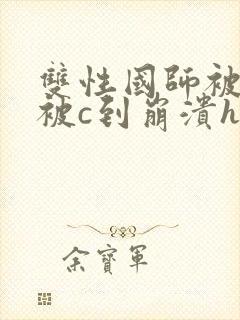 雙性國師被
被c到崩潰h
余寶軍